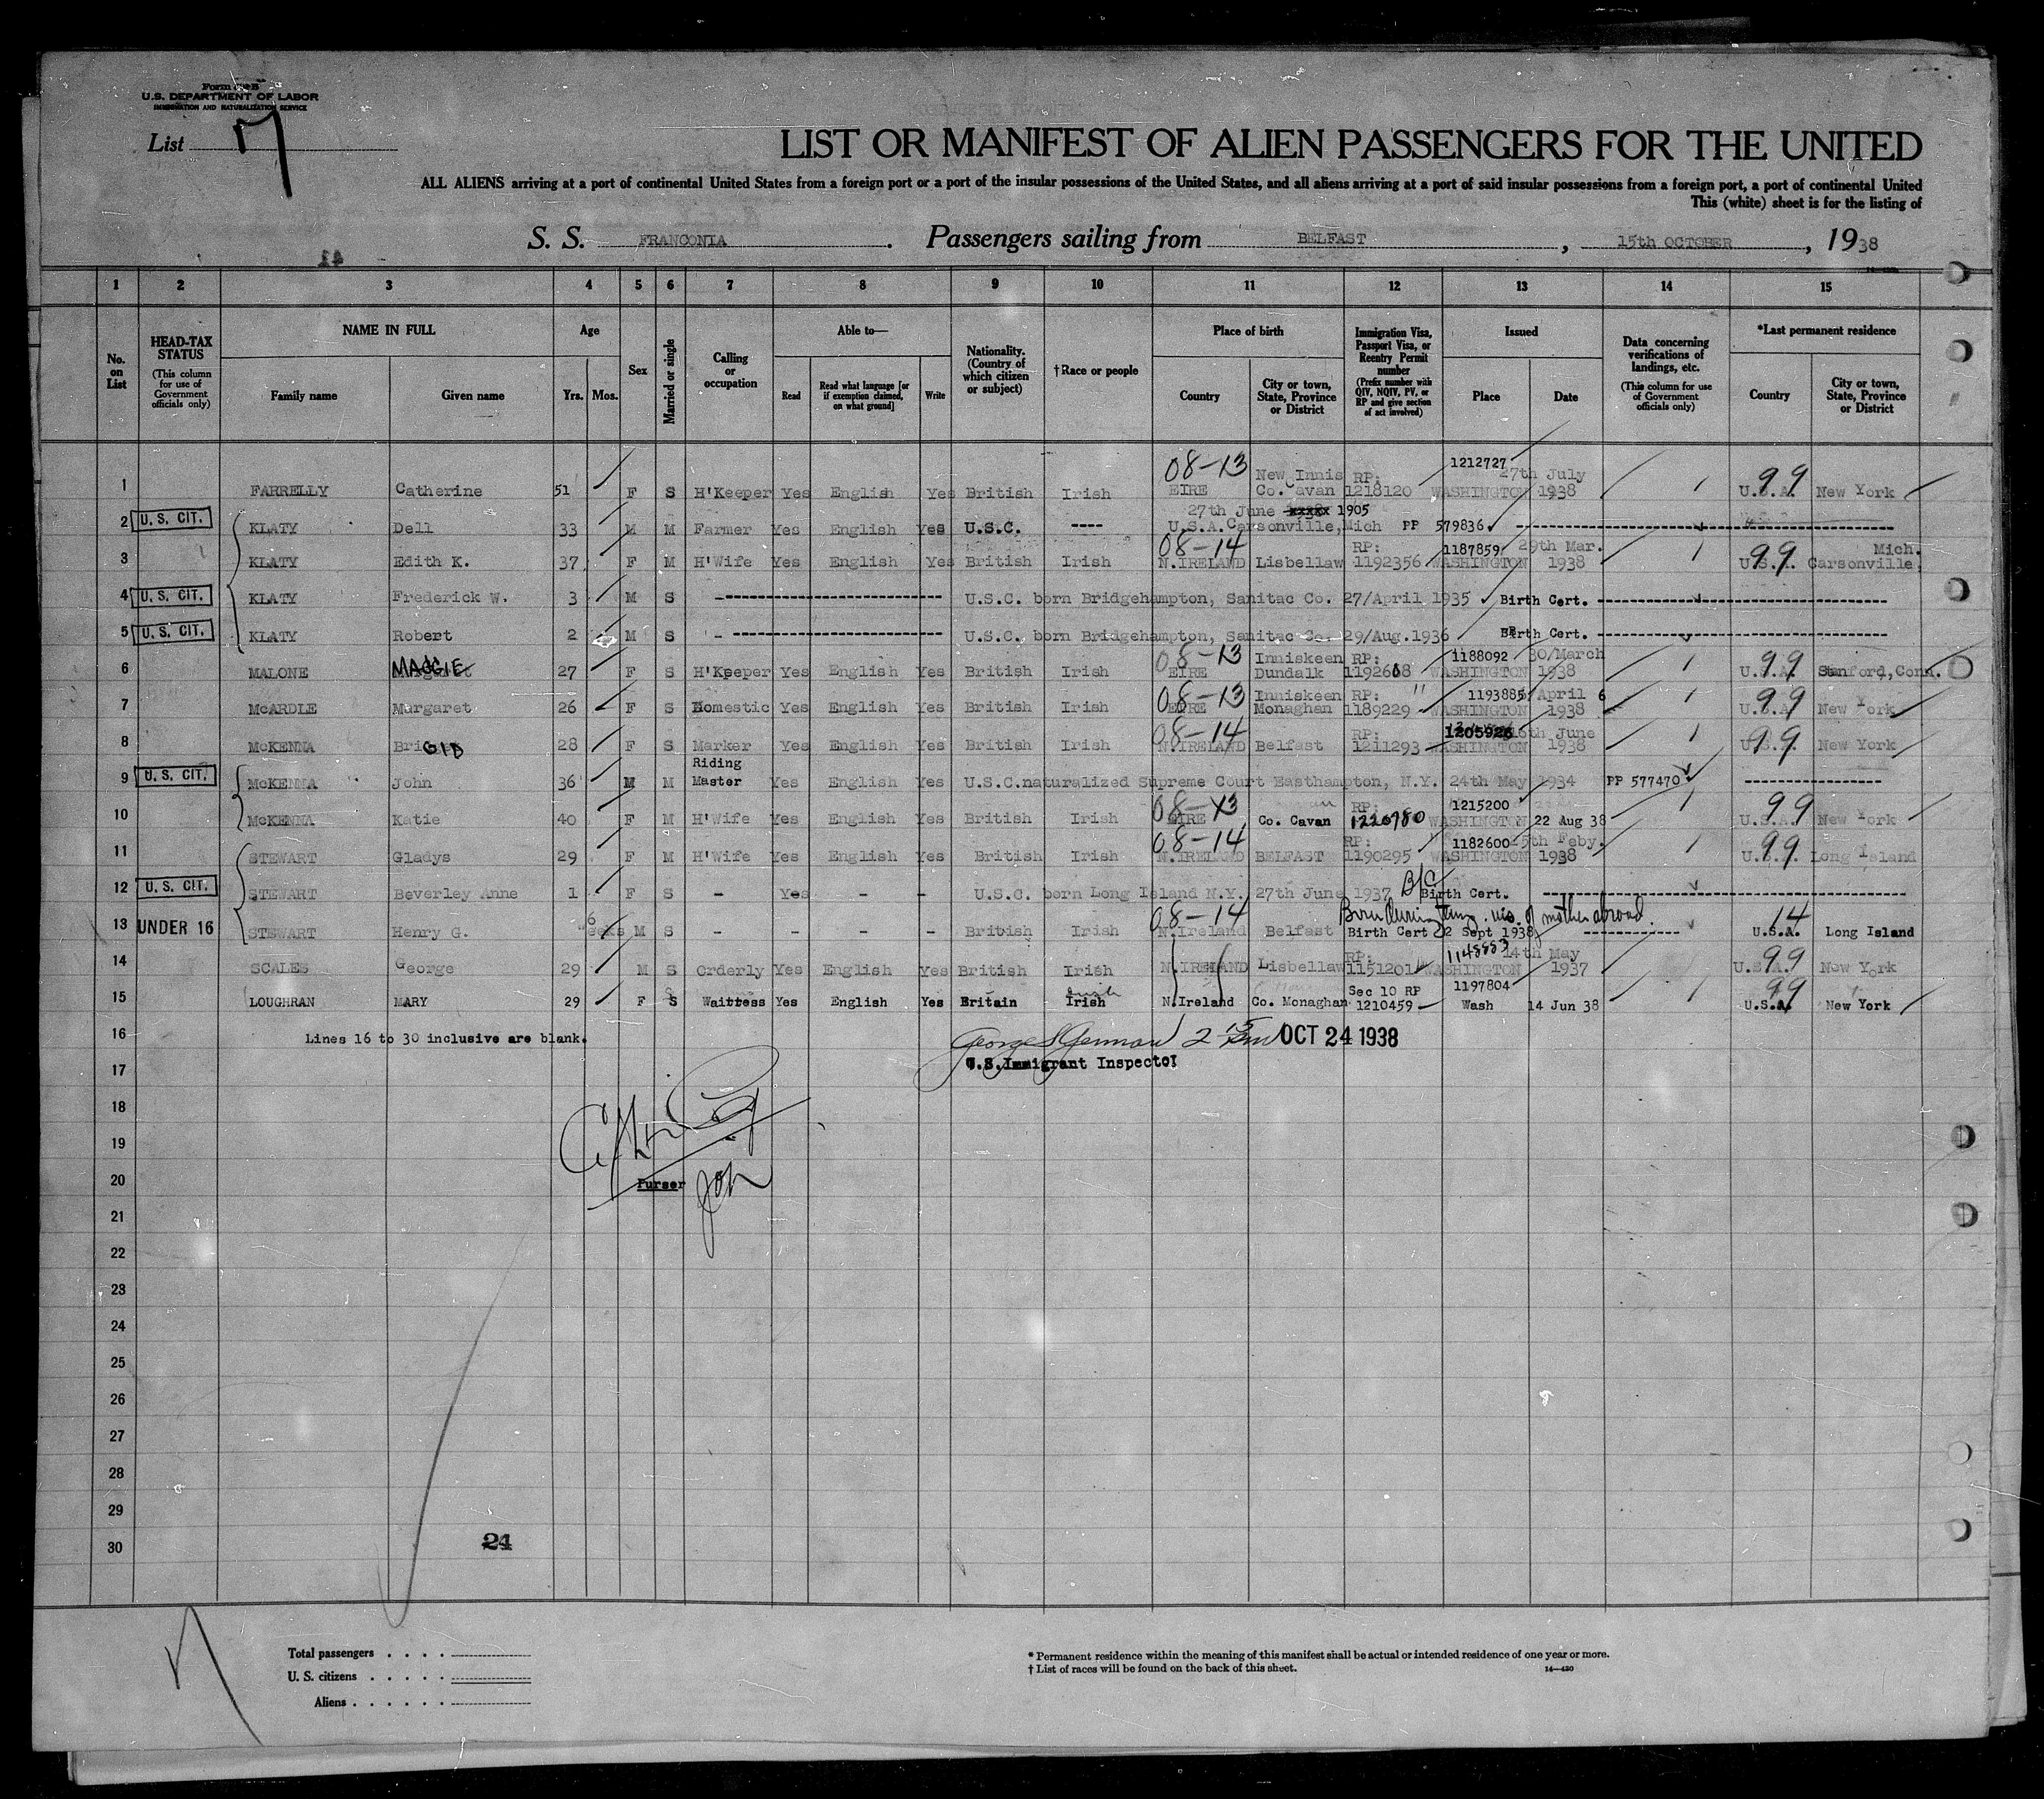 Form 500 B
U.S. DEPARTMENT OF LABOR
IMMIGRATION AND NATURALIZATION SERVICE
List 17
LIST OR MANIFEST OF ALIEN PASSENGERS FOR THE UNITED
ALL ALIENS arriving at a port of continental United States from a foreign port or a port of the insular possessions of the United States, and all aliens arriving at a port of said insular possessions from a foreign port, a port of continental United
This (white) sheet is for the listing of
S. S. FRANCONIA. Passengers sailing from BELFAST, 15th OCTOBER, 1938
1 2 3 4 5 6 7 8 9 10 11 12 13 14 15
No. on List
HEAD-TAX STATUS (This column for use of Government officials only)
NAME IN FULL Family name Given name
Age Yrs. Mos.
Sex
Married or single
Calling or occupation
Able to— Read Read what language [or if exemption claimed, on what ground] Write
Nationality. (Country of which citizen or subject)
† Race or people
Place of birth Country City or town, State, Province or District
Immigration Visa, Passport Visa, or Reentry Permit number (Prefix number with QIV, NQIV, PV, or RP and give section of act involved)
Issued Place Date
Data concerning verifications of landings, etc. (This column for use of Government officials only)
*Last permanent residence Country City or town, State, Province or District
08-13 New Innis RP: 1212727 27th July 99
1 FARRELLY Catherine 51 F S H'Keeper Yes English Yes British Irish EIRE Co. Cavan 1218120 WASHINGTON 1938 U.S.A. New York
27th June xxxxx 1905
2 U. S. CIT. KLATY Dell 33 M M Farmer Yes English Yes U.S.C. ---- U.S.A. Carsonville, Mich PP 579836
08-14 RP: 1187859 29th Mar. 99 Mich.
3 KLATY Edith K. 37 F M H'Wife Yes English Yes British Irish N.IRELAND Lisbellaw 1192356 WASHINGTON 1938 U.S.A. Carsonville,
4 U. S. CIT. KLATY Frederick W. 3 M S - U.S.C. born Bridgehampton, Sanitac Co. 27/April 1935 Birth Cert.
5 U. S. CIT. KLATY Robert 2 M S - U.S.C. born Bridgehampton, Sanitac Co. 29/Aug.1936 Birth Cert.
08-13 Inniskeen RP: 1188092 30/March 99
6 MALONE MAGGIE 27 F S H'Keeper Yes English Yes British Irish EIRE Dundalk 1192668 WASHINGTON 1938 U.S.A. Stanford, Conn.
08-13 Inniskeen RP: " 1193885 April 6 99
7 McARDLE Margaret 26 F S Domestic Yes English Yes British Irish EIRE Monaghan 1189229 WASHINGTON 1938 U.S.A. New York
08-14 RP: 1205926 16th June 99
8 McKENNA BriGID 28 F S Marker Yes English Yes British Irish N.IRELAND Belfast 1211293 WASHINGTON 1938 U.S. New York
Riding
9 U. S. CIT. McKENNA John 36 M M Master Yes English Yes U.S.C.naturalized Supreme Court Easthampton, N.Y. 24th May 1934 PP 577470
08-13 RP: 1215200 99
10 McKENNA Katie 40 F M H'Wife Yes English Yes British Irish EIRE Co. Cavan 1220780 WASHINGTON 22 Aug 38 U.S.A. New York
08-14 RP: 1182600 25th Feby. 99
11 STEWART Gladys 29 F M H'Wife Yes English Yes British Irish N.IRELAND BELFAST 1190295 WASHINGTON 1938 U.S.A. Long Island
12 U. S. CIT. STEWART Beverley Anne 1 F S - Yes - - U.S.C. born Long Island N.Y. 27th June 1937 B/C Birth Cert.
6 08-14 Born during temp. vis. of mother abroad. 14
13 UNDER 16 STEWART Henry G. Weeks M S - - - - British Irish N.Ireland Belfast Birth Cert 2 Sept 1938 U.S.A. Long Island
RP: 1148883 14th May 99
14 SCALES George 29 M S Orderly Yes English Yes British Irish N.IRELAND Lisbellaw 1151201 WASHINGTON 1937 U.S.A. New York
Irish Sec 10 RP 1197804 99
15 LOUGHRAN MARY 29 F S Waitress Yes English Yes Britain Irish N.Ireland Co. Monaghan 1210459 Wash 14 Jun 38 U.S.A. New York
16 Lines 16 to 30 inclusive are blank. 2 15 pm OCT 24 1938
17 U.S.Immigrant Inspector
18
19
20 Purser
21
22
23
24
25
26
27
28
29
30 24
Total passengers . . . .
U. S. citizens . . . . .
Aliens . . . . . .
* Permanent residence within the meaning of this manifest shall be actual or intended residence of one year or more.
† List of races will be found on the back of this sheet. 14—430